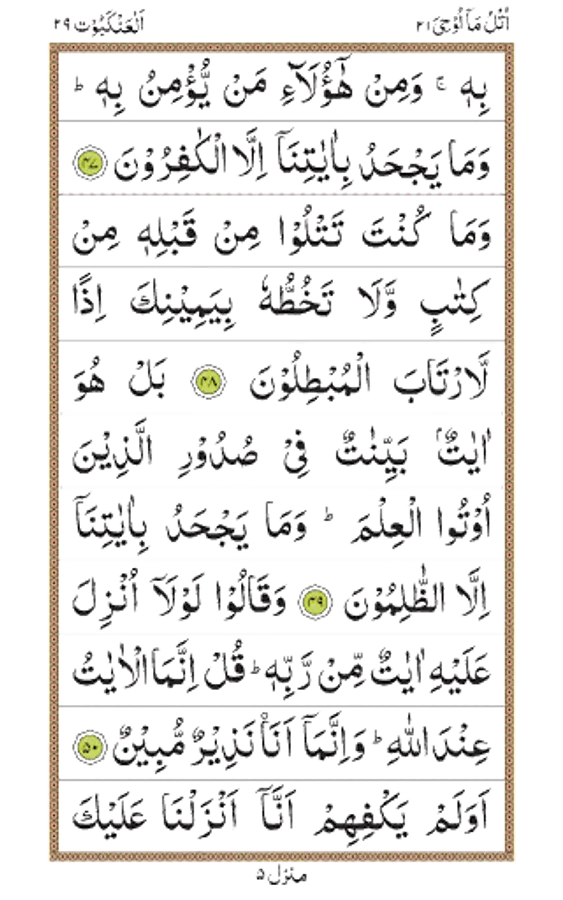 اَلْعَنْكَبُوْت ٢٩
اُتْلُ مَآ اُوْحِیَ ٢١
بِهٖ ۚ وَمِنْ هٰۤؤُلَآءِ مَنْ یُّؤْمِنُ بِهٖ ؕ
وَمَا یَجْحَدُ بِاٰیٰتِنَاۤ اِلَّا الْكٰفِرُوْنَ ﴿۴۷﴾
وَمَا كُنْتَ تَتْلُوْا مِنْ قَبْلِهٖ مِنْ
كِتٰبٍ وَّلَا تَخُطُّهٗ بِیَمِیْنِكَ اِذًا
لَّارْتَابَ الْمُبْطِلُوْنَ ﴿۴۸﴾ بَلْ هُوَ
اٰیٰتٌۢ بَیِّنٰتٌ فِیْ صُدُوْرِ الَّذِیْنَ
اُوْتُوا الْعِلْمَ ؕ وَمَا یَجْحَدُ بِاٰیٰتِنَاۤ
اِلَّا الظّٰلِمُوْنَ ﴿۴۹﴾ وَقَالُوْا لَوْلَاۤ اُنْزِلَ
عَلَیْهِ اٰیٰتٌ مِّنْ رَّبِّهٖ ؕ قُلْ اِنَّمَا الْاٰیٰتُ
عِنْدَ اللّٰهِ ؕ وَاِنَّمَاۤ اَنَا۠ نَذِیْرٌ مُّبِیْنٌ ﴿۵۰﴾
اَوَلَمْ یَكْفِهِمْ اَنَّاۤ اَنْزَلْنَا عَلَیْكَ
منزل ۵